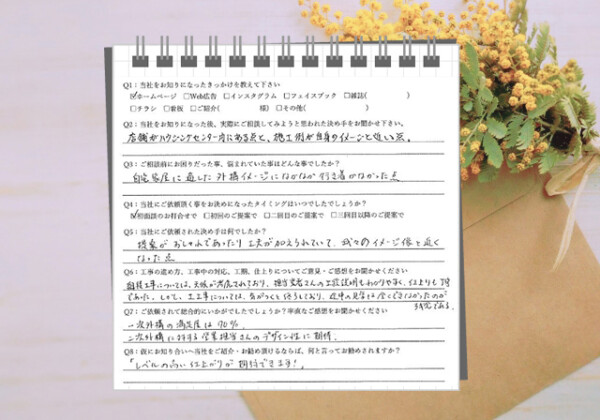 Q1：当社をお知りになったきっかけを教えて下さい
☑ホームページ □Web広告 □インスタグラム □フェイスブック □雑誌( )
□チラシ □看板 □ご紹介( 様) □その他( )
Q2：当社をお知りになった後、実際にご相談してみようと思われた決め手をお聞かせ下さい。
店舗がハウジングセンター内にある点と、施工例が自身のイメージと近い点。
Q3：ご相談前にお困りだった事、悩まれていた事はどんな事でしたか？
自宅家屋に適した外構イメージになかなか行き着かなかった点
Q4：当社にご依頼頂く事をお決めになったタイミングはいつでしたでしょうか？
☑初面談のお打合せで □初回のご提案で □二回目のご提案で □三回目以降のご提案で
Q5：当社にご依頼された決め手は何でしたか？
提案がおしゃれであったり工夫が加えられていて、我々のイメージ像と近く
なった点
Q6：工事の進め方、工事中の対応、工期、仕上りについてご意見・ご感想をお聞かせください
植栽工事については、天候が考慮されており、担当業者さんの工程説明もわかりやすく、仕上りも丁寧
であった。しかし、土工事については、気がつくと終了しており、途中の見学は全くできなかったのが
残念である。
Q7：ご依頼されて総合的にいかがでしたでしょうか？率直なご感想をお聞かせください
一次外構の満足度は90%。
二次外構に対する営業担当さんのデザイン性に期待。
Q8：仮にお知り合いへ当社をご紹介・お勧め頂けるならば、何と言ってお勧めされますか？
「レベルの高い仕上がりが期待できます！」